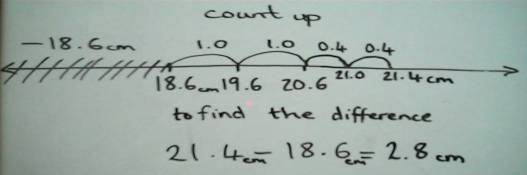 count up
-18.6cm 1.0 1.0 0.4 0.4
18.6cm 19.6 20.6 21.0 21.4cm
to find the difference
21.4cm - 18.6cm = 2.8cm